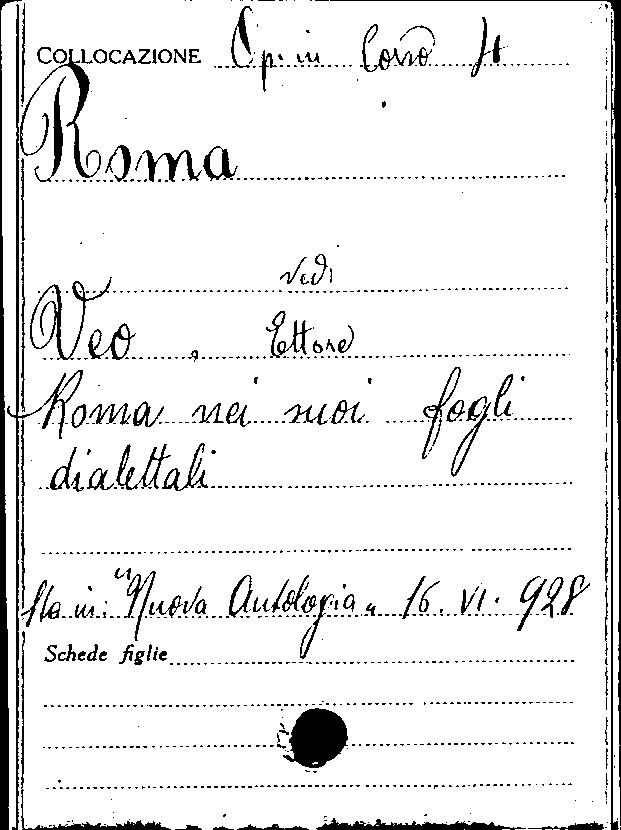 COLLOCAZIONE Op. in Corso 4
Roma
vedi
Veo, Ettore
Roma nei suoi fogli
dialettali
Sta in: "Nuova Antologia" 16. VI. 928
Schede figlie